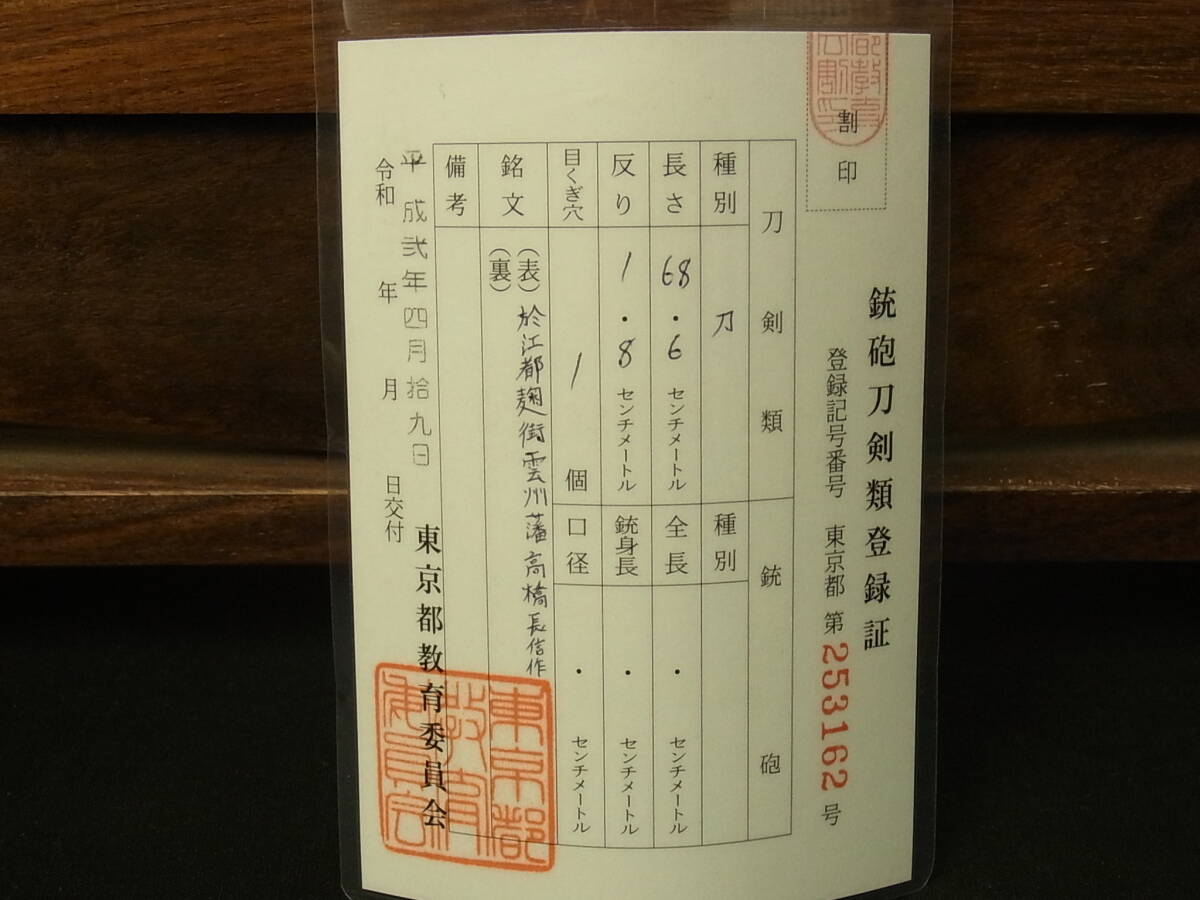 割印
銃砲刀剣類登録証
登録記号番号 東京都 第253162号
刀剣類 銃砲
種別 刀 種別
長さ 68・6センチメートル 全長 ・センチメートル
反り 1・8センチメートル 銃身長 ・センチメートル
目くぎ穴 1個 口径 ・センチメートル
銘文 (表)於江都麹街雲州藩高橋長信作
(裏)
備考
平成弐年四月拾九日
令和 年 月 日交付
東京都教育委員会
東京都
教育
委員会